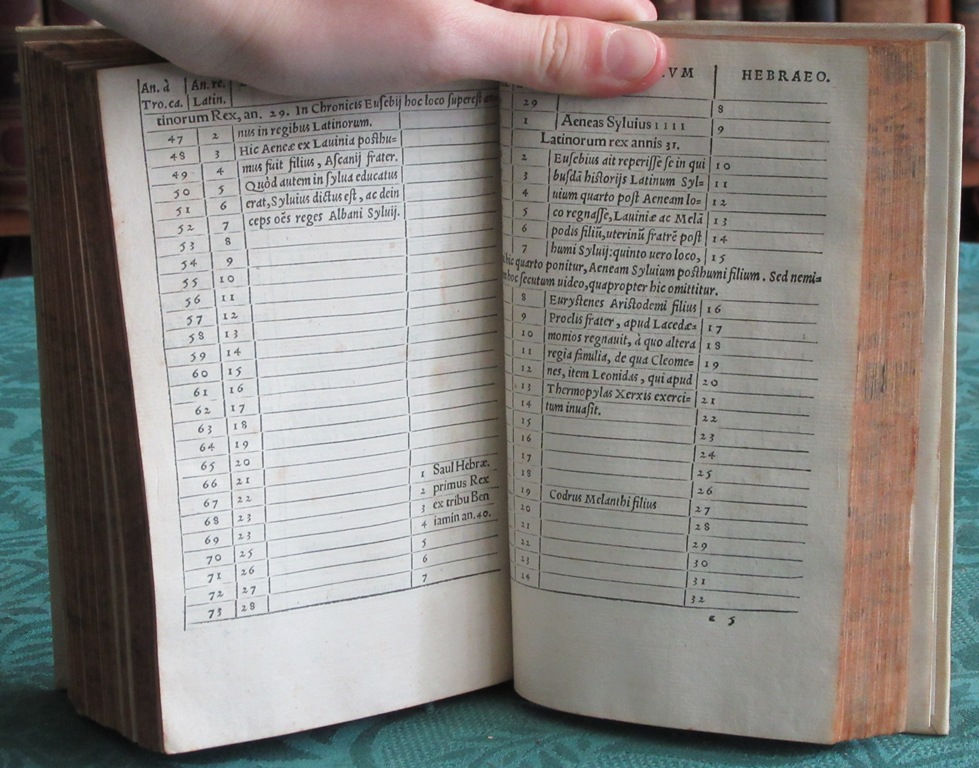 An. d An. re.
Tro. ca. Latin.
tinorum Rex, an. 29. In Chronicis Eusebij hoc loco superest
47 2 nus in regibus Latinorum.
48 3 Hic Aeneæ ex Lauinia posthu-
49 4 mus fuit filius, Ascanij frater.
50 5 Quòd autem in sylua educatus
51 6 erat, Syluius dictus est, ac dein
52 7 ceps oẽs reges Albani Syluij.
53 8
54 9
55 10
56 11
57 12
58 13
59 14
60 15
61 16
62 17
63 18
64 19
65 20
66 21 1 Saul Hebræ.
67 22 2 primus Rex
68 23 3 ex tribu Ben
69 23 4 iamin an. 40.
70 25 5
71 26 6
72 27 7
73 28
VM HEBRAEO.
29 8
1 Aeneas Syluius 1111 9
Latinorum rex annis 31.
2 Eusebius ait reperisse se in qui 10
3 busdã historijs Latinum Syl- 11
4 uium quarto post Aeneam lo- 12
5 co regnasse, Lauiniæ ac Melã 13
6 podis filiũ, uterinũ fratrẽ post 14
7 humi Syluij: quinto uero loco, 15
hic quarto ponitur, Aeneam Syluium posthumi filium. Sed nemi-
hoc secutum uideo, quapropter hic omittitur.
8 Eurystenes Aristodemi filius 16
9 Proclis frater, apud Lacedæ- 17
10 monios regnauit, à quo altera 18
11 regia familia, de qua Cleome- 19
12 nes, item Leonidas, qui apud 20
13 Thermopylas Xerxis exerci- 21
14 tum inuasit. 22
15 23
16 24
17 25
18 26
19 Codrus Melanthi filius 27
20 28
21 29
22 30
23 31
24 32
5